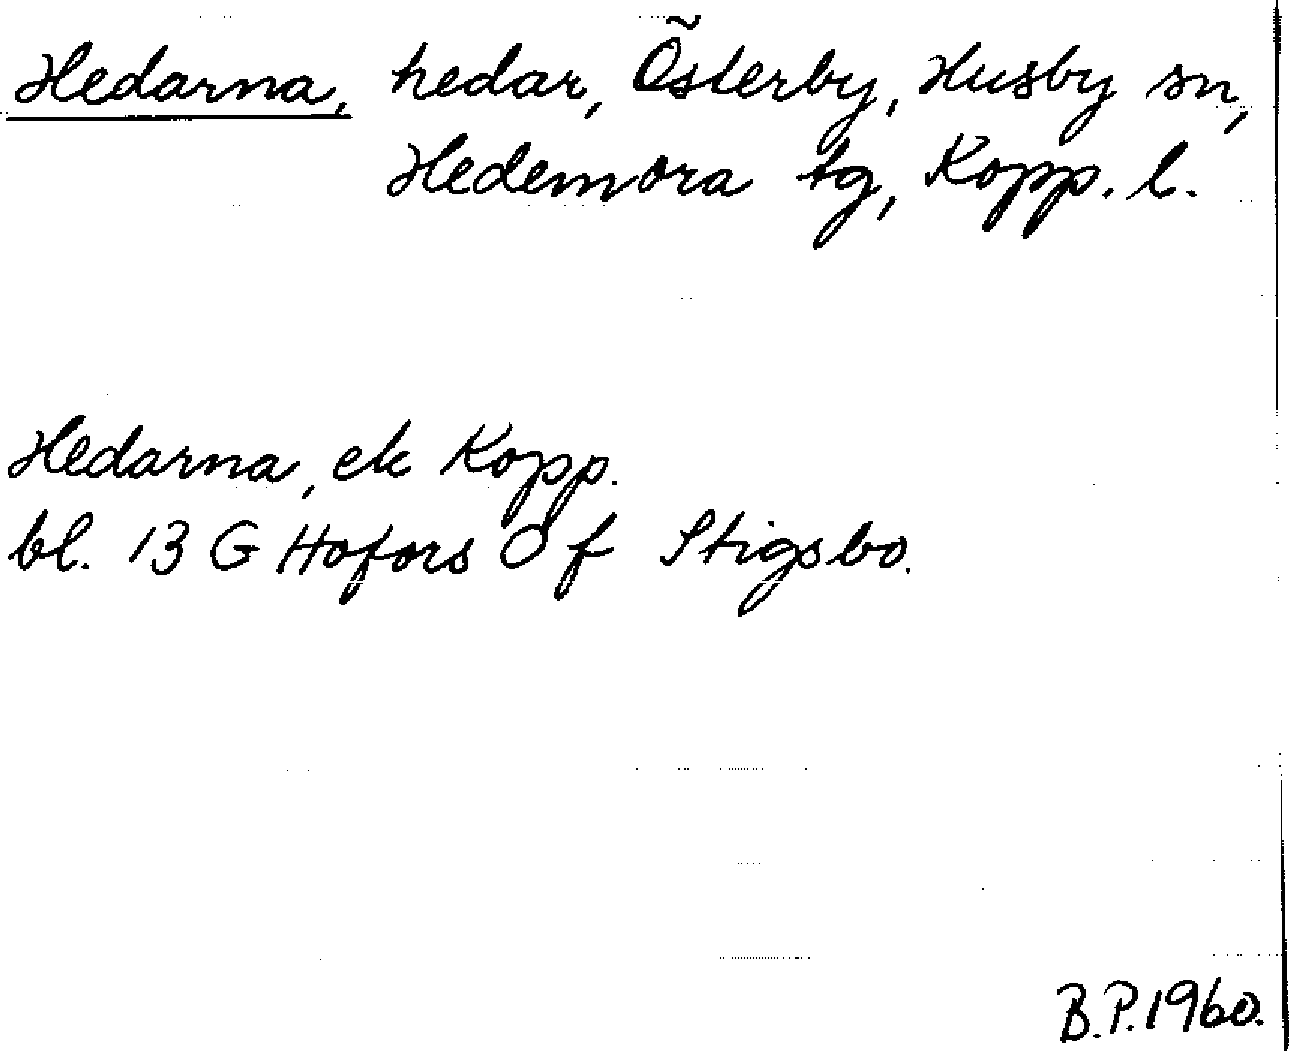 Hedarna, hedar, Österby, Husby sn,
Hedemora tg, Kopp. l.
Hedarna, ek Kopp.
bl. 13 G Hofors O f Stigsbo.
B.P. 1960.